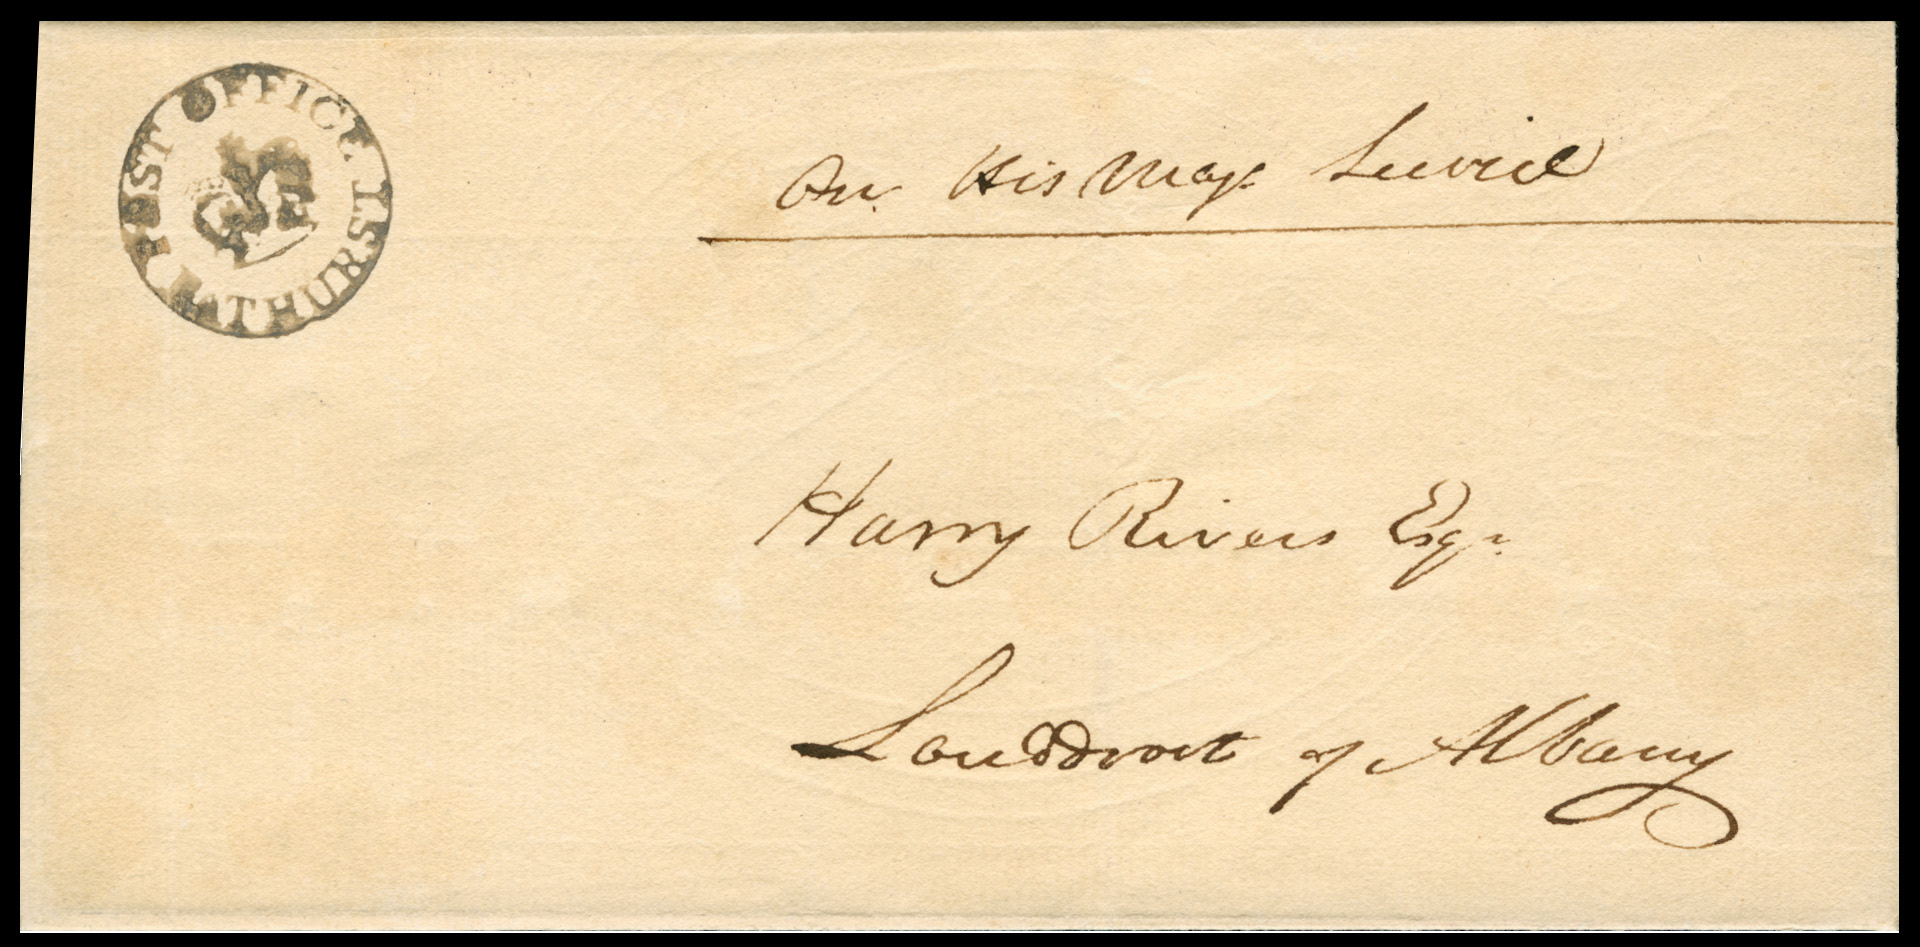 POST OFFICE
BATHURST
On His Majs. Service
Harry Rivers Esqr.
Landdrost of Albany